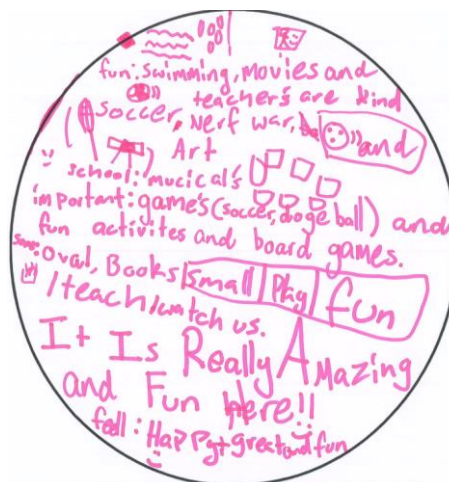 fun: swimming, movies and
teachers are kind
soccer, Nerf war, and
Art
school: mucical's
important: games (soccer, dogeball) and
fun activites and board games.
Oval, Books/small/play/fun
/teach/watch us.
It Is Really Amazing
and Fun Here!!
fell: Happy+great and fun